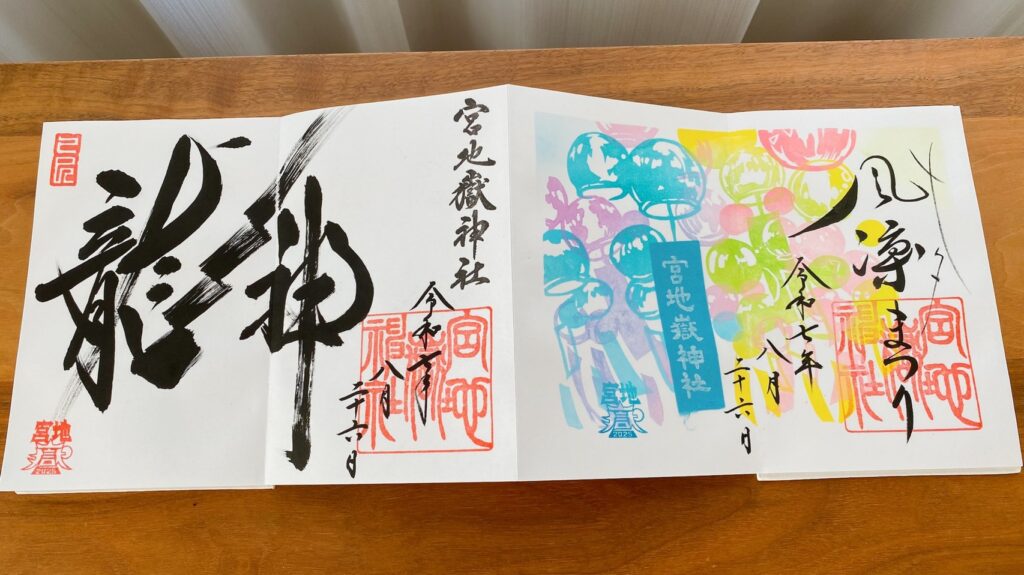 宮地嶽神社
令和七年
八月
二十六日
神
龍
宮地嶽神社
宮地嶽
2025
風凛まつり
令和七年
八月
二十六日
宮地嶽神社
宮地嶽神社
宮地嶽
2025